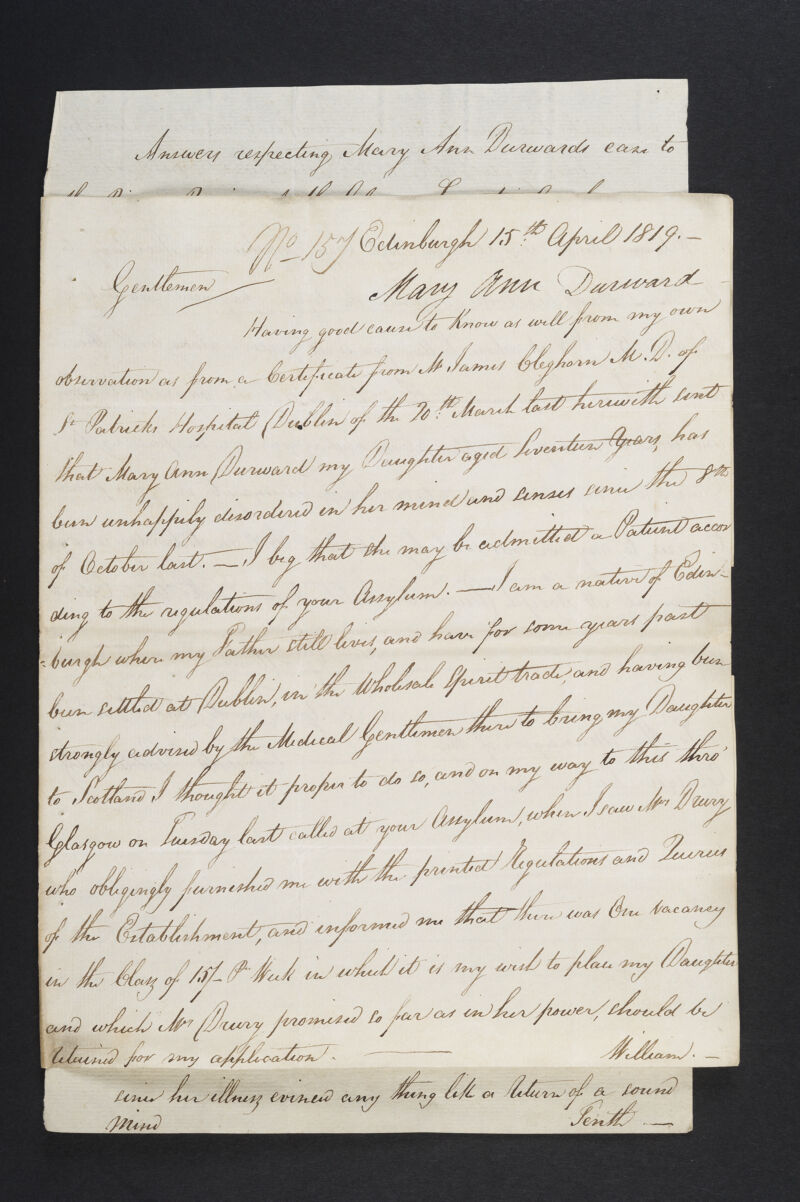 Answers respecting Mary Ann Durwards case to
No 157 Edinburgh 15th April 1819.—
Gentlemen
Mary Ann Durward
Having good cause to know as well from my own
observation as from a Certificate from Mr James Cleghorn M.D. of
St Patricks Hospital Dublin of the 20th March last herewith sent
that Mary Ann Durward my Daughter aged Seventeen Years, has
been unhappily disordered in her mind and senses since the 8th
of October last. — I beg that she may be admitted a Patient accor
ding to the regulations of your Assylum. — I am a native of Edin-
-burgh where my Father still lives, and have for some years past
been settled at Dublin, in the Wholesale Spirit trade, and having been
strongly advised by the Medical Gentlemen there to bring my Daughter
to Scotland I thought it proper to do so, and on my way to this thro'
Glasgow on Tuesday last called at your Assylum, when I saw Mrs Drury
who obligingly furnished me with the printed Regulations and Queries
of the Establishment, and informed me that there was One vacancy
in the Class of 15/- P Week in which it is my wish to place my Daughter
and which Mrs Drury promised so far as in her power, should be
retained for my application. — William. —
since her illness evinced any thing like a return of a sound
mind Tenth —